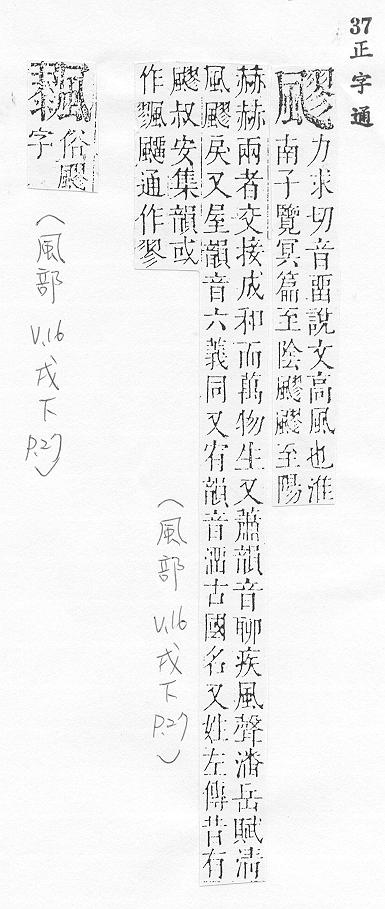 37正字通
飂
力求切音畱說文高風也淮
南子覽冥篇至陰飂飂至陽
赫赫兩者交接成和而萬物生又蕭韻音聊疾風聲潘岳賦淸
風飂戾又屋韻音六義同又宥韻音澑古國名又姓左傳昔有
飂叔安集韻或
作飀通作翏
（風部 V.16 戌下 P.27）
俗飂
字
（風部 V.16 戌下 P.27）